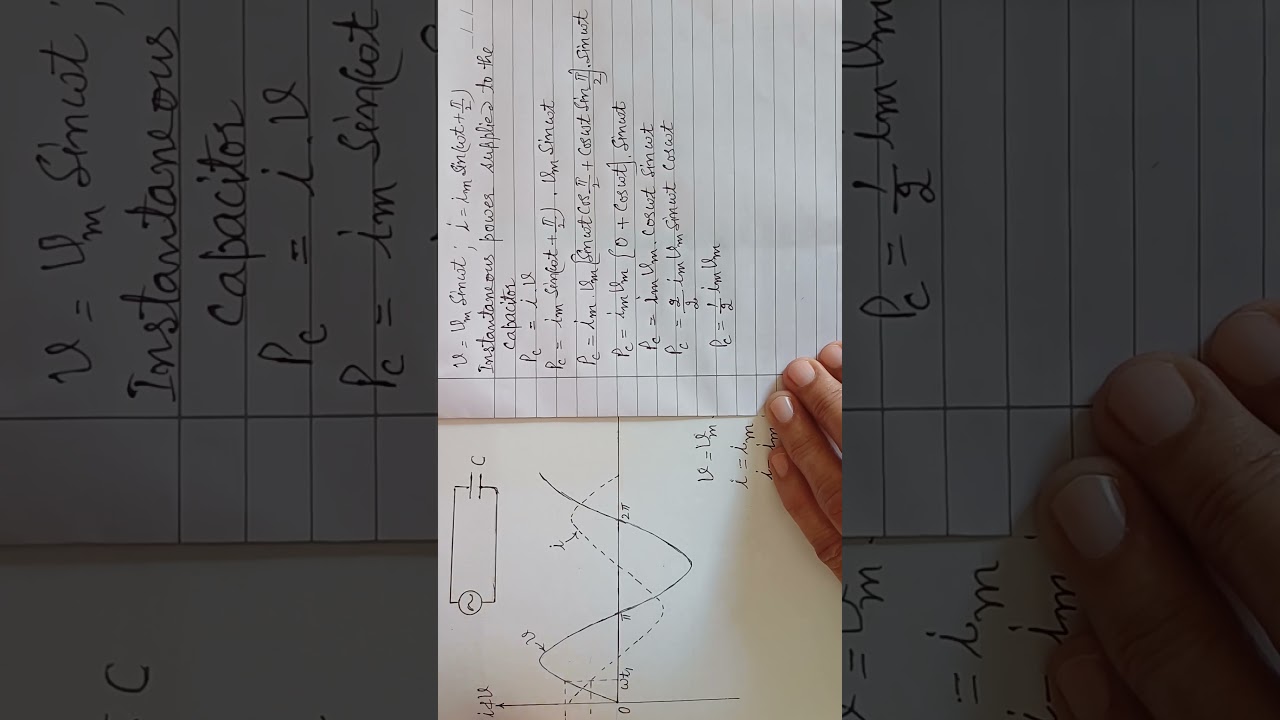 v = vm Sinωt ; i = im Sin(ωt + π/2)
Instantaneous power supplied to the
Capacitor
Pc = i . v
Pc = im Sin(ωt + π/2) . vm Sinωt
Pc = im . vm [Sinωt Cos π/2 + Cosωt Sin π/2] . Sinωt
Pc = im vm [0 + Cosωt] . Sinωt
Pc = im vm . Cosωt Sinωt
Pc = 2/2 im vm Sinωt Cosωt
Pc = 1/2 im vm
C
i & v
v
i
0
ωt1
π
2π
v = vm
i = im
i = im